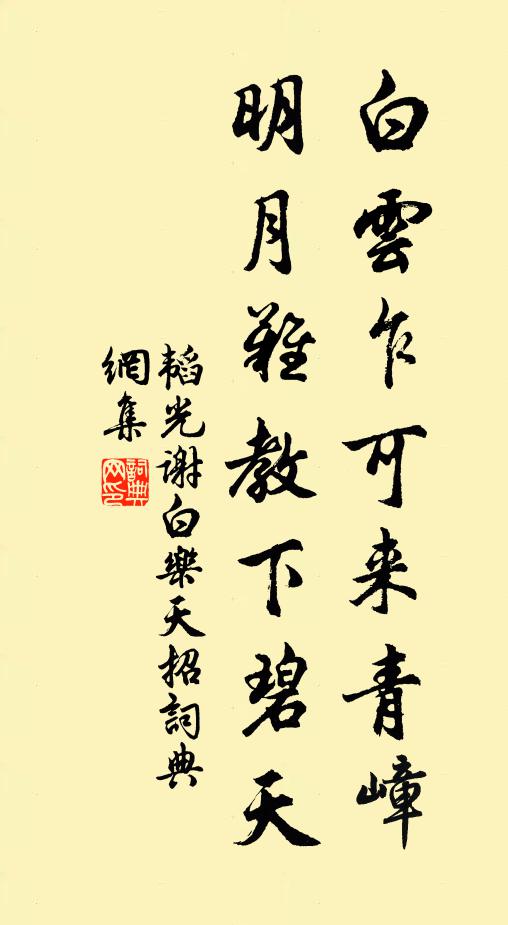 白雲乍可来青嶂
明月難教下碧天
韬光謝白樂天招詞典
網集
詞典
网印